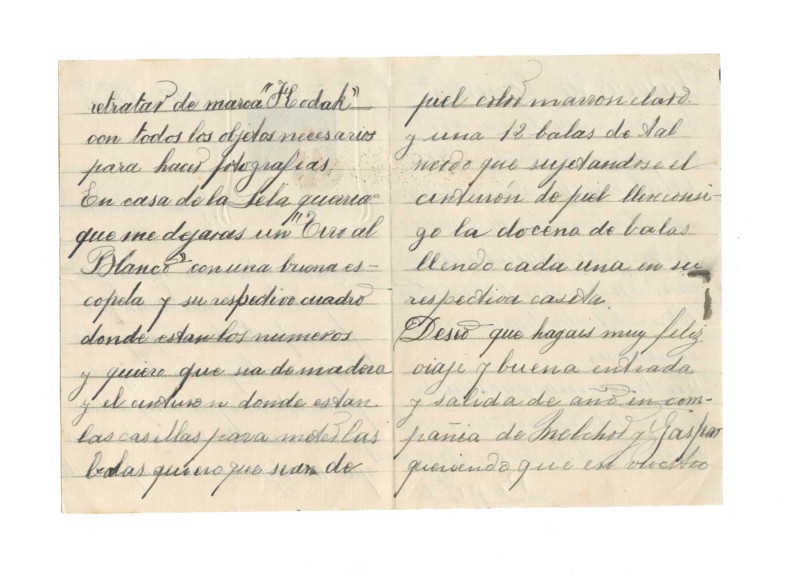 retratar de marca "Kodak"
con todos los objetos necesarios
para hacer fotografias.
En casa de la Lela queria
que me dejaras un "Tiro al
Blanco" con una buena es-
copeta y su respectivo cuadro
donde estan los numeros
y quiero que sea de madera
y el cinturon donde estan
las casillas para meter las
balas quiero que sean de
piel color marron claro.
y una 12 balas de tal
modo que sujetandose el
cinturón de piel lleve consi-
go la docena de balas
llendo cada una en su
respectiva casita.
Deseo que hagais muy feliz
viaje y buena entrada
y salida de año en com-
pañia de Melchor y Gaspar
queriendo que en vuestro